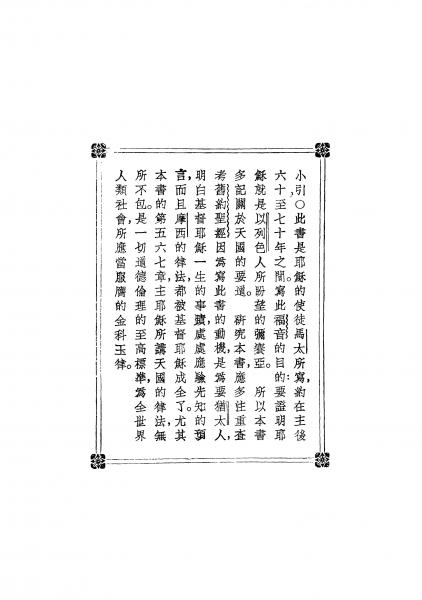 小引○此書是耶穌的使徒馬太所寫,約在主後
六十至七十年之間。寫此福音的目的:要證明耶
穌就是以色列人所盼望的彌賽亞。 所以本書
多記關於天國的要道。 研究本書,應多注重查
考舊約聖經因爲寫此書的動機,是爲要猶太人,
明白基督耶穌一生的事蹟,處處應驗先知的預
言,而且摩西的律法,都被基督耶穌成全了。尤其
本書的第五六七章,主耶穌所講天國的律法,無
所不包。是一切道德倫理的至高標準,爲全世界
人類社會,所應當服膺的金科玉律。